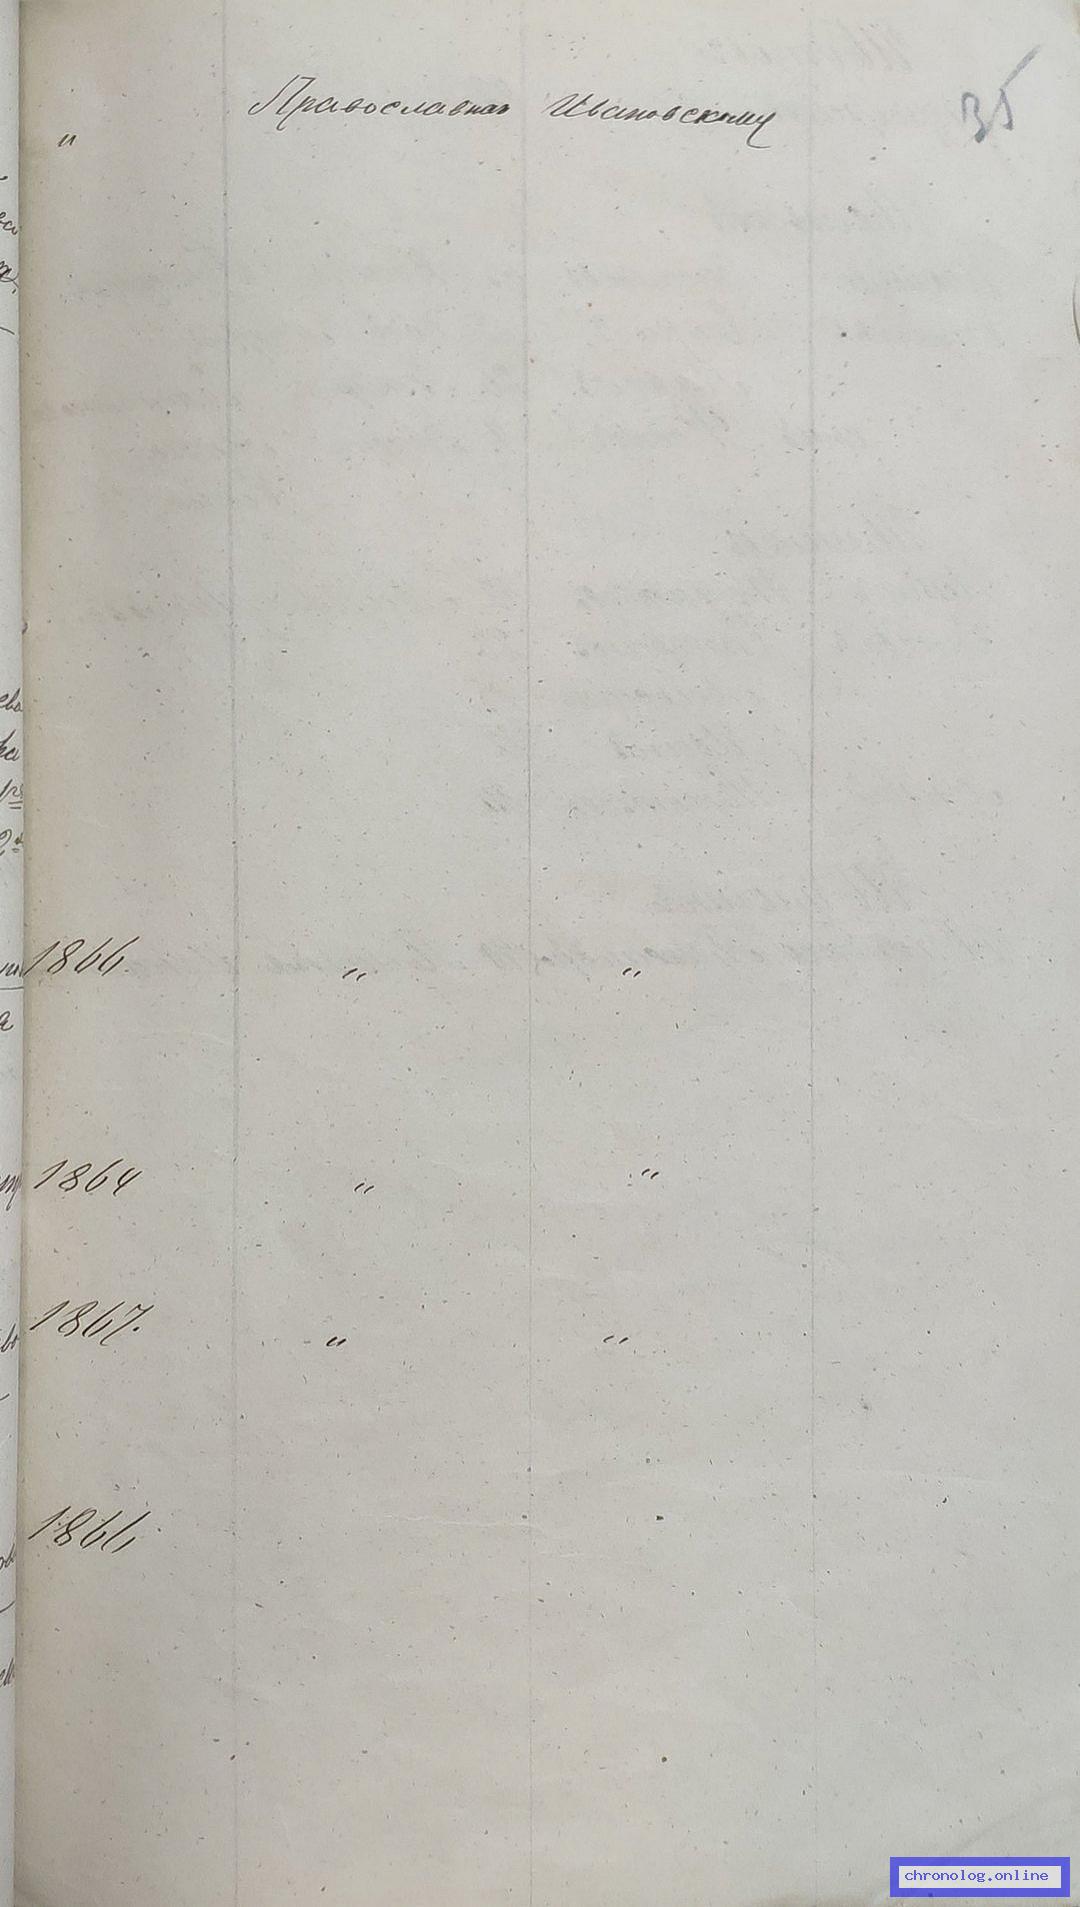 35
Православная Ивановскому
"
1866. " "
1864 " "
1867. " "
1866.
chronolog.online